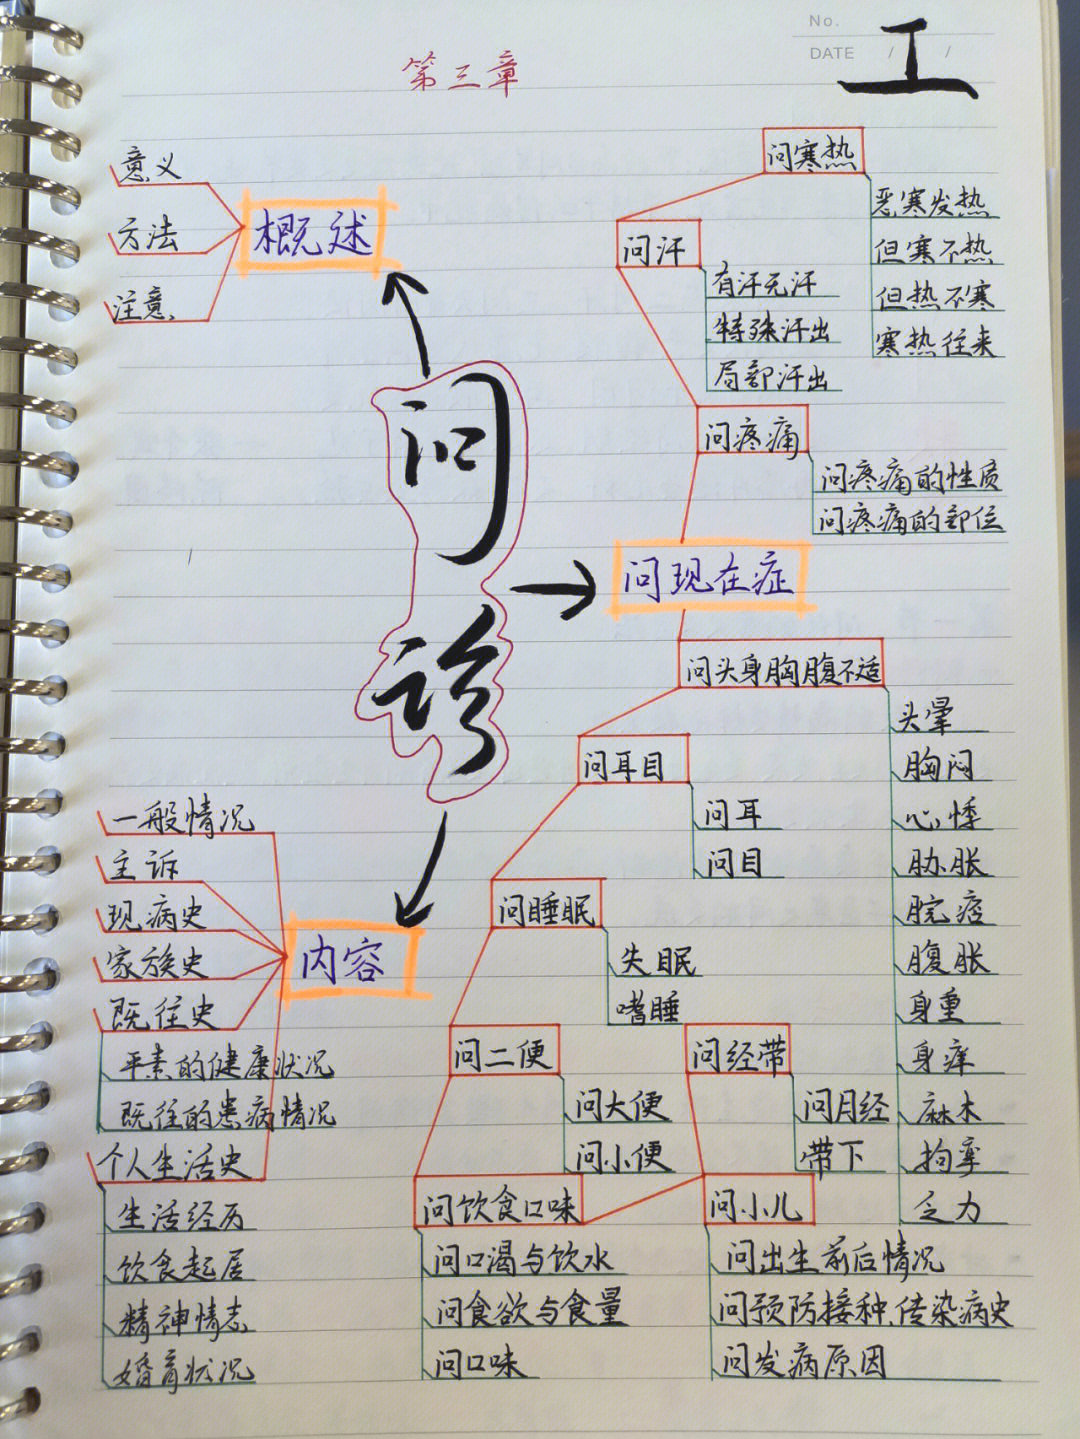 No.
DATE / /
工
第三章
意义
方法
注意
概述
问诊
问寒热
恶寒发热
但寒不热
但热不寒
寒热往来
问汗
有汗无汗
特殊汗出
局部汗出
问疼痛
问疼痛的性质
问疼痛的部位
问现在症
问头身胸腹不适
头晕
胸闷
心悸
胁胀
脘痞
腹胀
身重
身痒
麻木
拘挛
乏力
问耳目
问耳
问目
问睡眠
失眠
嗜睡
问二便
问大便
问小便
问饮食口味
问口渴与饮水
问食欲与食量
问口味
问经带
问月经
带下
问小儿
问出生前后情况
问预防接种、传染病史
问发病原因
内容
一般情况
主诉
现病史
家族史
既往史
平素的健康状况
既往的患病情况
个人生活史
生活经历
饮食起居
精神情志
婚育状况